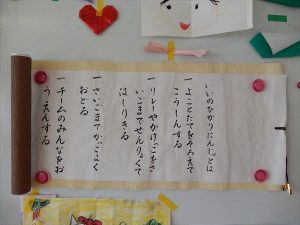 いいのひかりにんじゃとは
一よことたてをそろえて
こうしんする
一リレーやかけっこをさ
いごまでぜんりょくで
はしりきる
一さいごまでかっこよく
おどる
一チームのみんなをお
うえんする